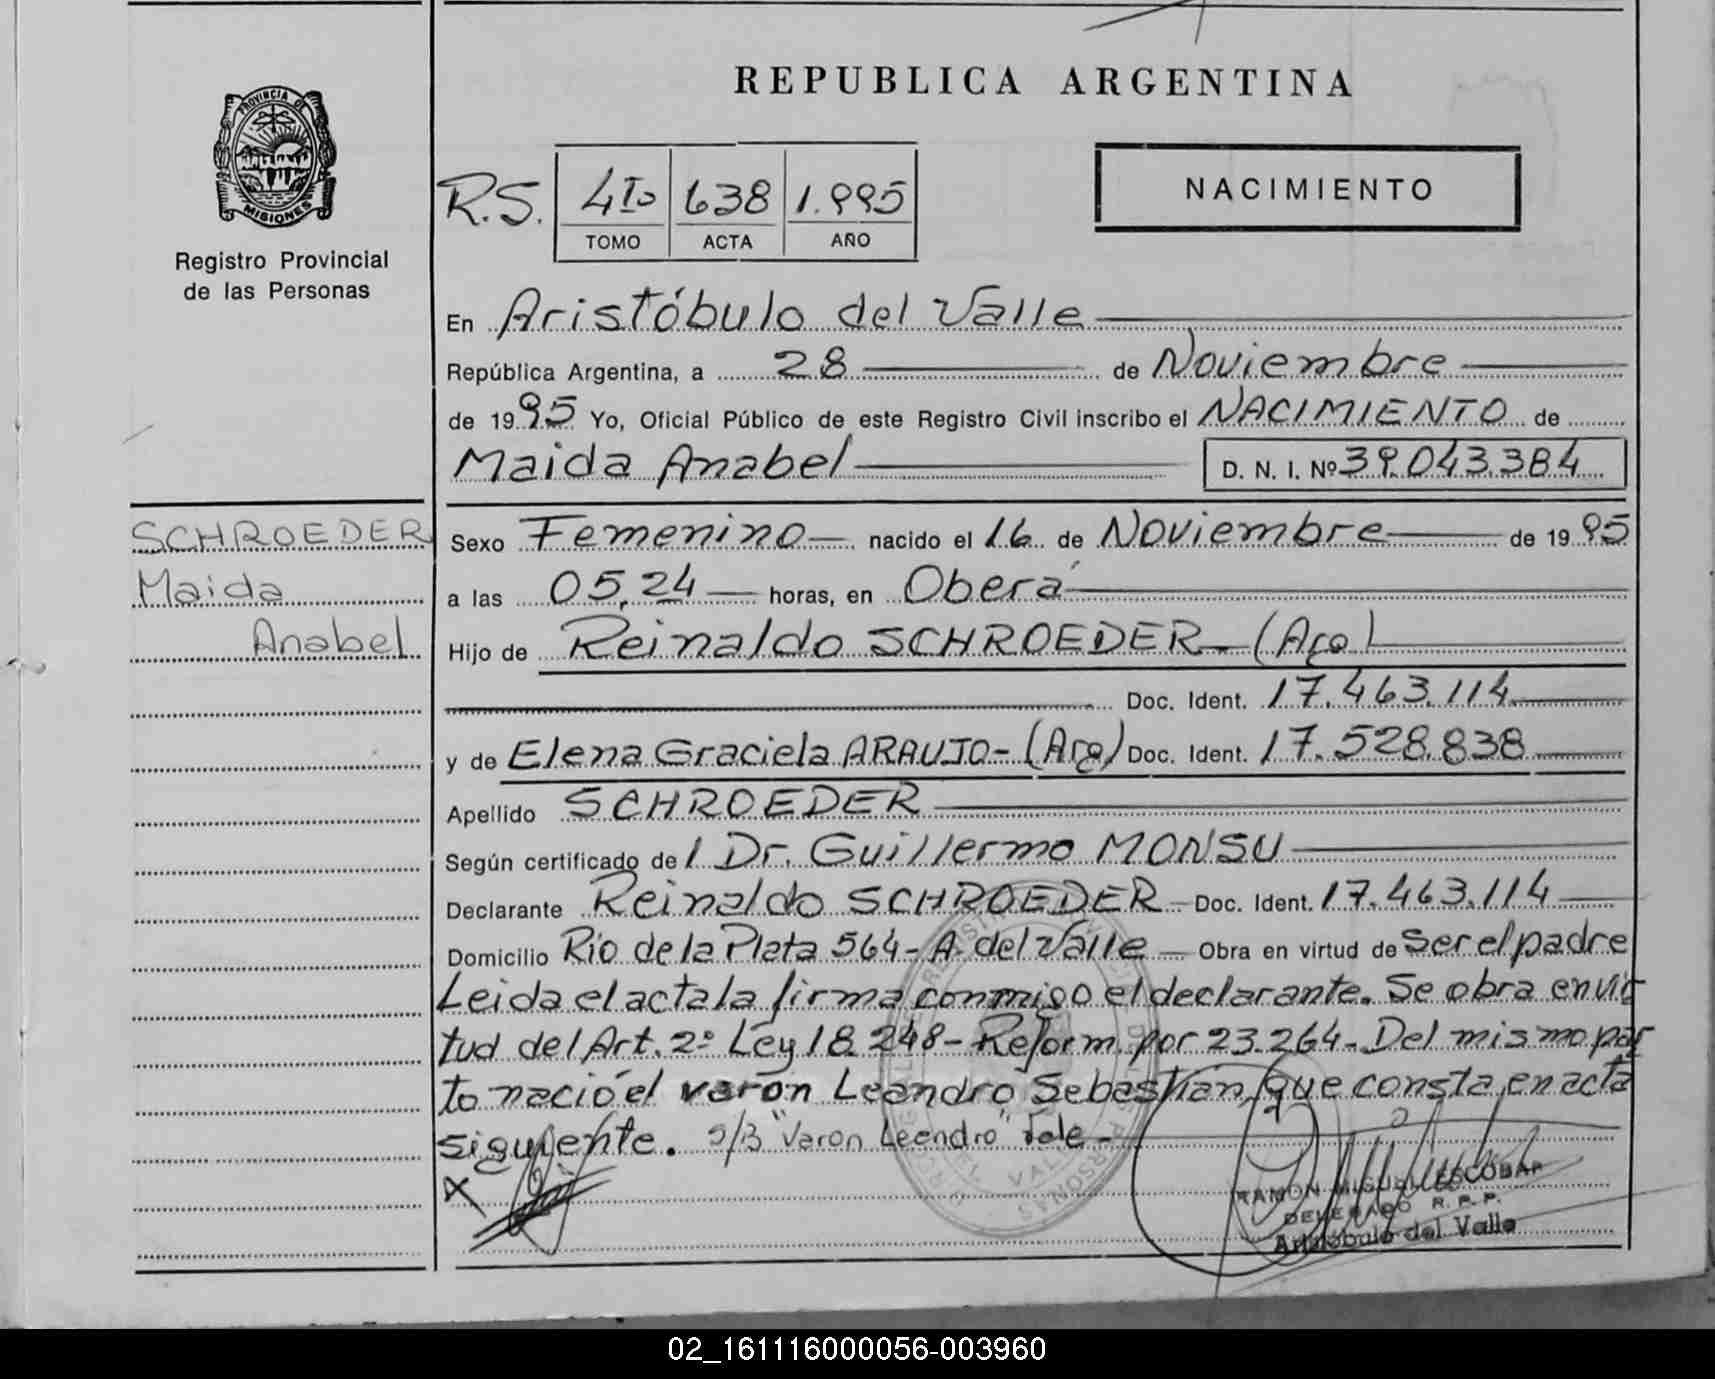 REPUBLICA ARGENTINA
PROVINCIA DE
MISIONES
Registro Provincial
de las Personas
R.S. 4to 638 1.995
TOMO ACTA AÑO
NACIMIENTO
En Aristóbulo del Valle
República Argentina, a 28 de Noviembre
de 1995 Yo, Oficial Público de este Registro Civil inscribo el NACIMIENTO de
Maida Anabel D. N. I. Nº 39.043.384
SCHROEDER
Maida
Anabel
Sexo Femenino nacido el 16 de Noviembre de 1995
a las 05,24 horas, en Oberá
Hijo de Reinaldo SCHROEDER - (Arg)
Doc. Ident. 17.463.114
y de Elena Graciela ARAUJO - (Arg) Doc. Ident. 17.528.838
Apellido SCHROEDER
Según certificado de l Dr. Guillermo MONSU
Declarante Reinaldo SCHROEDER - Doc. Ident. 17.463.114
Domicilio Río de la Plata 564 - A. del Valle - Obra en virtud de ser el padre
Leida el acta la firma conmigo el declarante. Se obra en vir
tud del Art. 2º Ley 18.248 - Reform. por 23.264 - Del mismo par
to nació el varón Leandro Sebastián, que consta en acta
siguiente. S/B "Varon Leandro" Vale -
X
RAMON MIGUEL ESCOBAR
DELEGADO R. P. P.
Aristóbulo del Valle
02_161116000056-003960